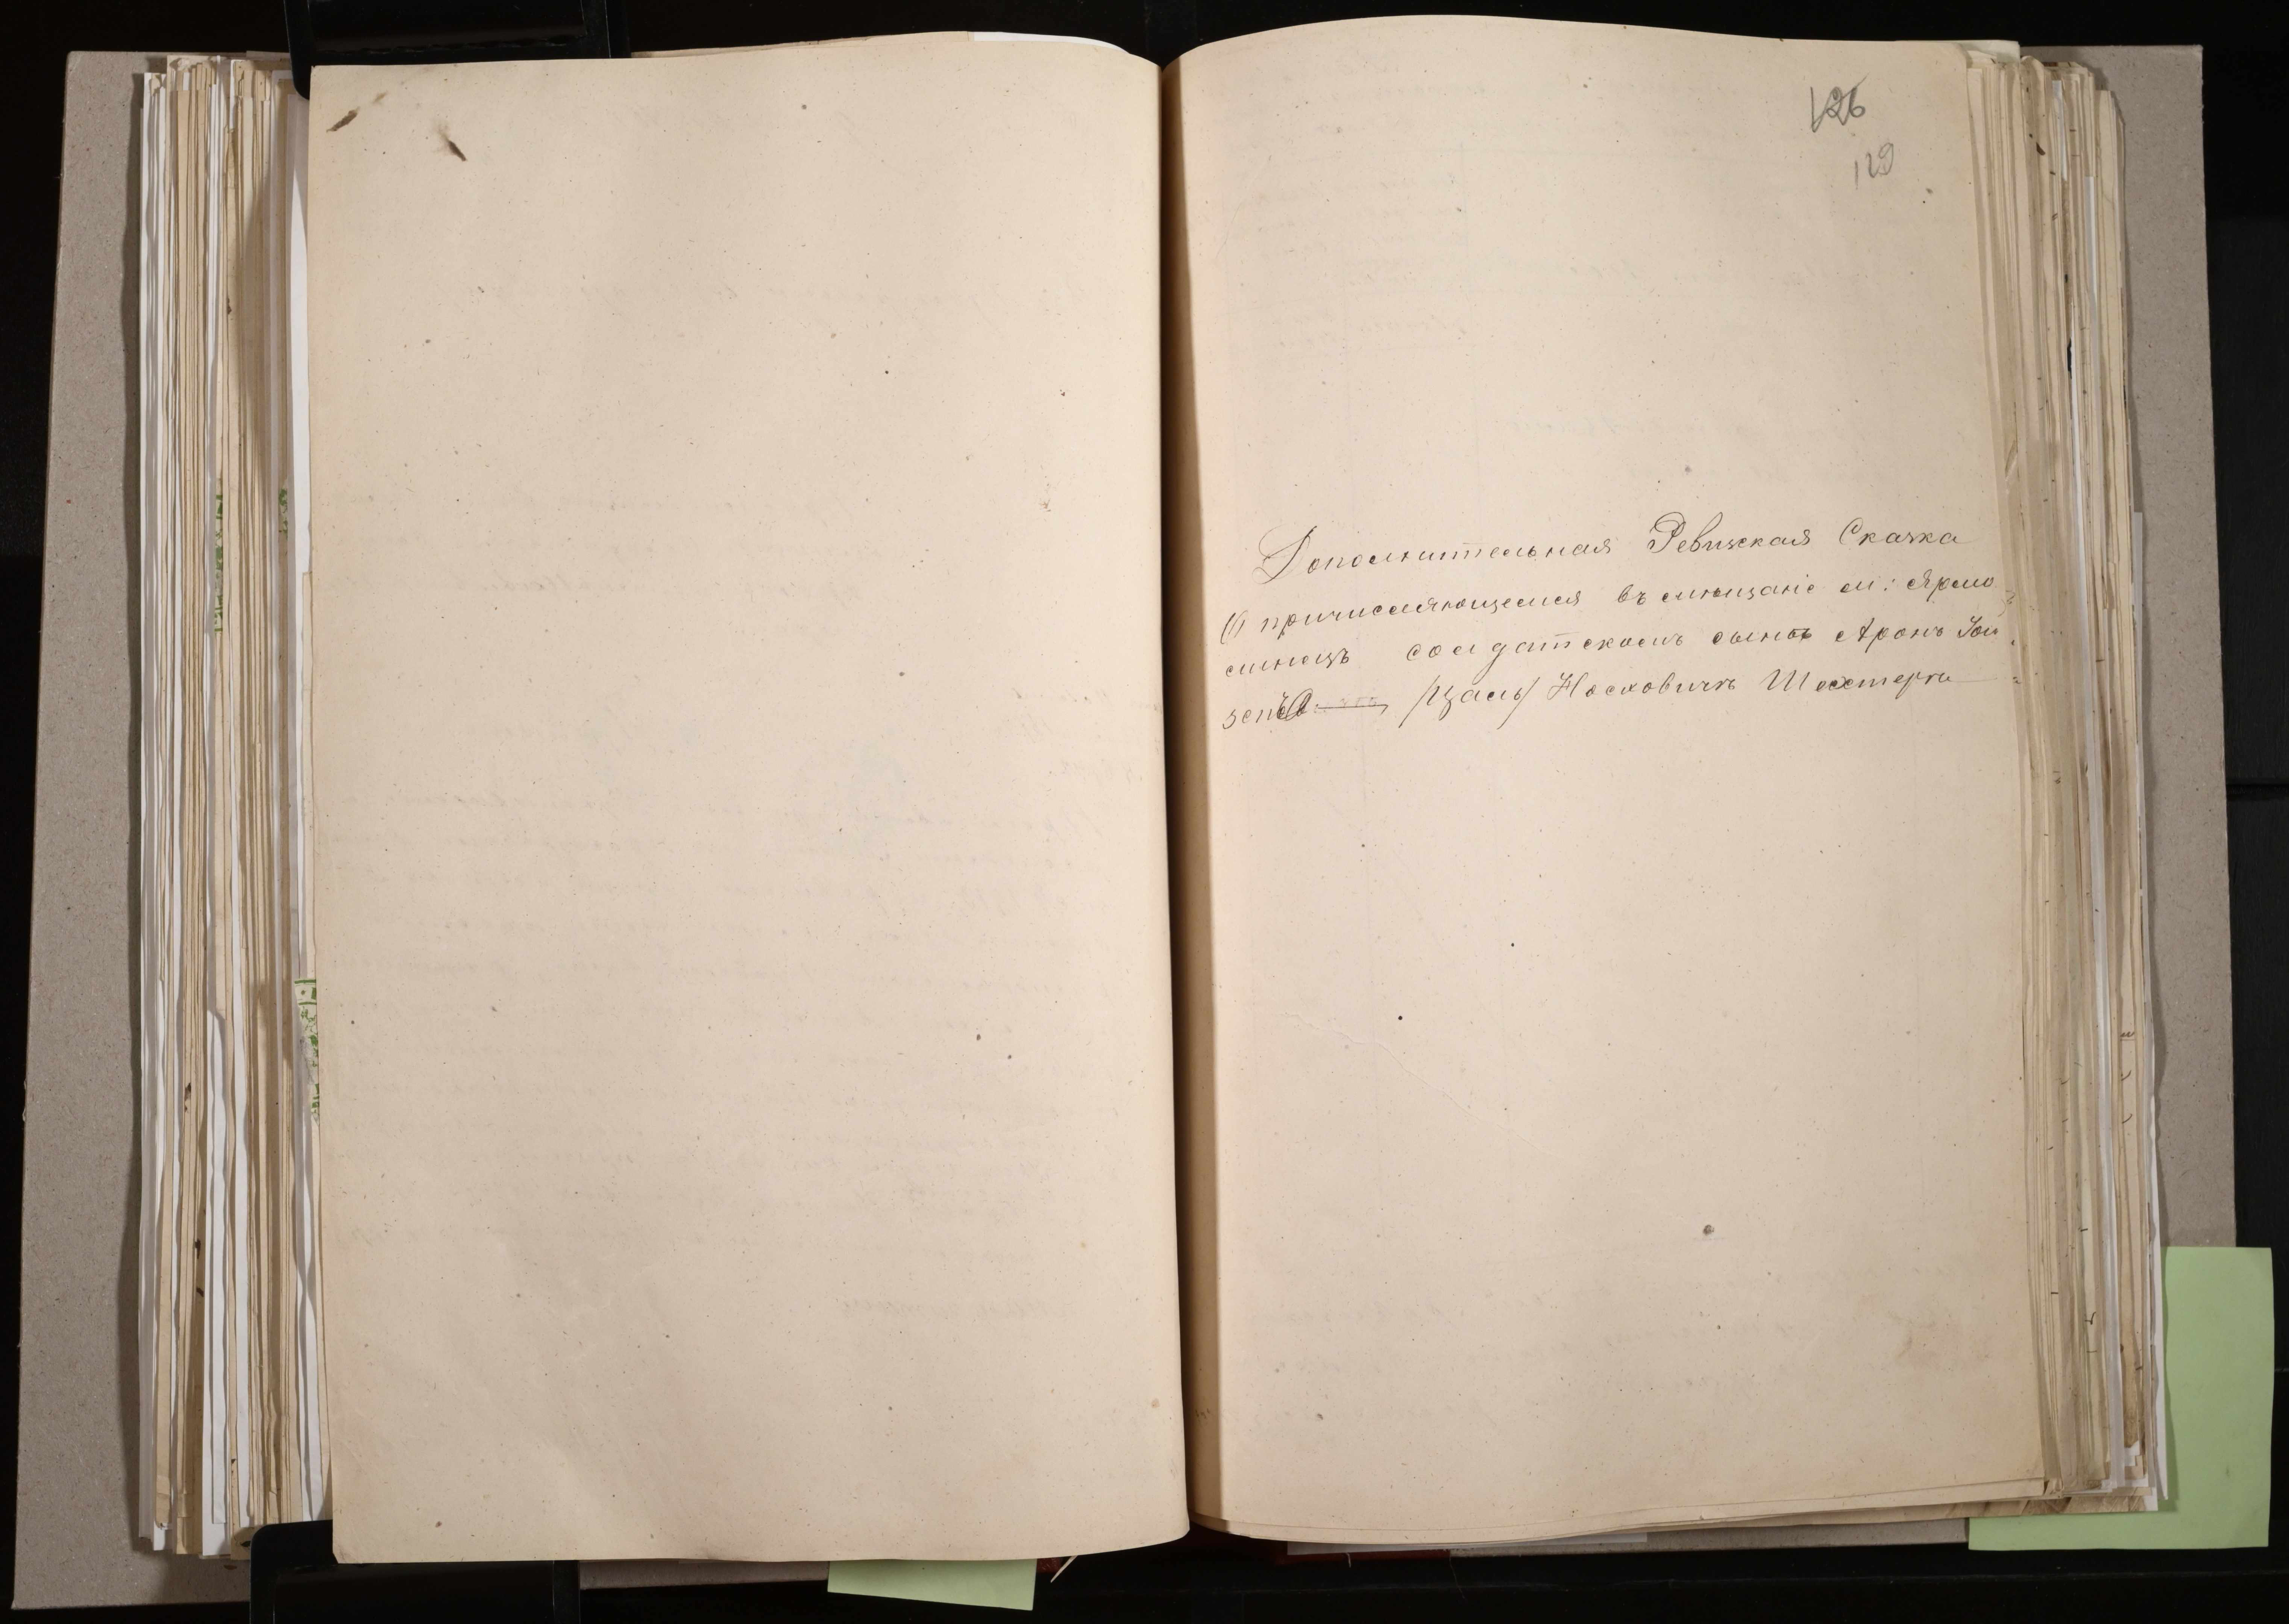 126
129
Дополнительная Ревизская Сказка
О причисляющемся въ мѣщанiе м: Ярмо
линецъ солдатскомъ сынѣ Аронъ Іой
зепѣ /Цаль/ Носковичъ Шехтерѣ